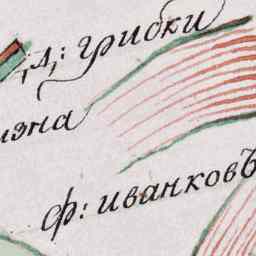 д: грибки
изна
ф: иванковъ